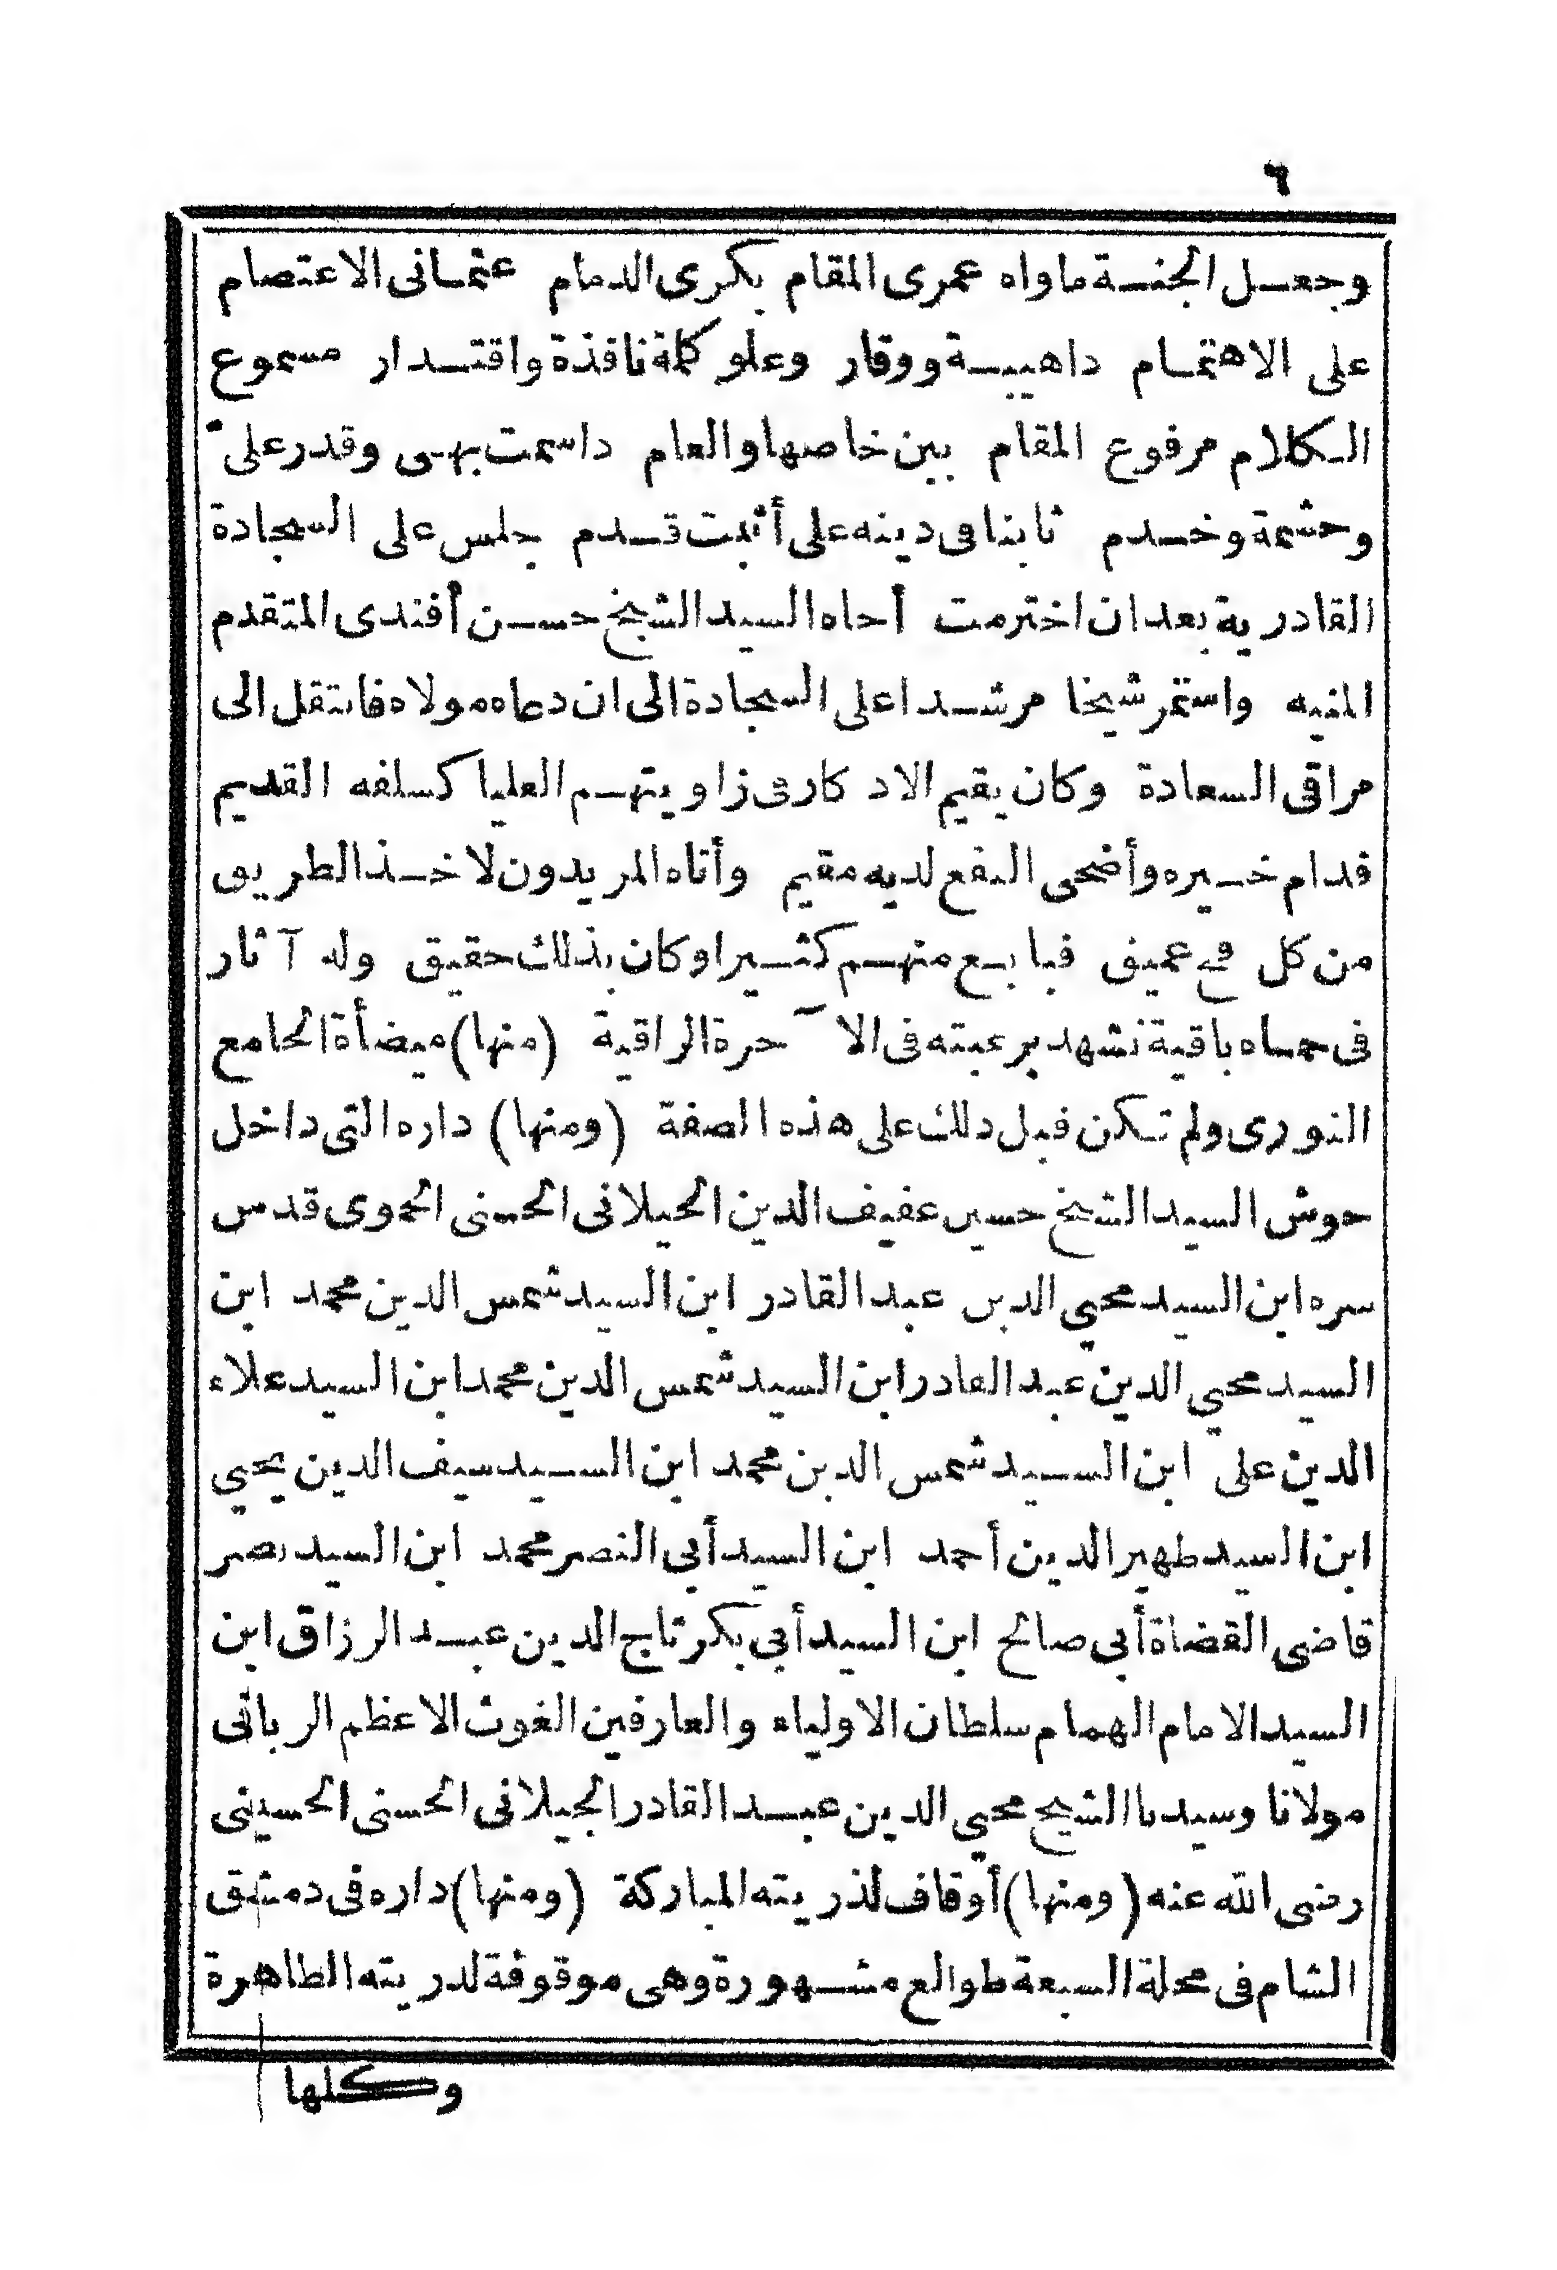 ٦
وجعل الجنة ماواه عمرى المقام بكرى الدمام عثمانى الاعتصام
على الاهتمام داهيبة ووقار وعلو كلمة نافذة واقتدار مسموع
الكلام مرفوع المقام بين خاصها والعام داسمت بهى وقدر على
وحشمة وخدم ثابتا فى دينه على أثبت قدم جلس على السجادة
القادرية بعد ان اخترمت أحاه السيد الشيخ حسن أفندى المتقدم
المنيه واستمر شيخا مرشدا على السجادة الى ان دعاه مولاه فانتقل الى
مراقى السعادة وكان يقيم الاد كار فى زاويتهم العليا كسلفه القديم
فدام خيره وأضحى النفع لديه مقيم وأتاه المريدون لاخذ الطريق
من كل فج عميق فبايع منهم كثيرا وكان بذلك حقيق وله آثار
فى حماه باقية تشهد برغبته فى الآخرة الراقية (منها) ميضأة الجامع
النورى ولم تكن قبل دلك على هذه الصفة (ومنها) داره التى داخل
حوش السيد الشيخ حسين عفيف الدين الجيلانى الحسنى الحموى قدس
سره ابن السيد محيي الدين عبد القادر ابن السيد شمس الدين محمد ابن
السيد محيي الدين عبد القادر ابن السيد شمس الدين محمد ابن السيد علاء
الدين على ابن السيد شمس الدين محمد ابن السيد سيف الدين يحيي
ابن السيد ظهير الدين أحمد ابن السيد أبى النصر محمد ابن السيد نصر
قاضى القضاة أبى صالح ابن السيد أبى بكر تاج الدين عبد الرزاق ابن
السيد الامام الهمام سلطان الاولياء والعارفين الغوث الاعظم الربانى
مولانا وسيدنا الشيخ محيي الدين عبد القادر الجيلانى الحسنى الحسينى
رضى الله عنه (ومنها) أوقاف لذريته المباركة (ومنها) داره فى دمشق
الشام فى محلة السبعة طوالع مشهورة وهى موقوفة لدريته الطاهرة
وكلها